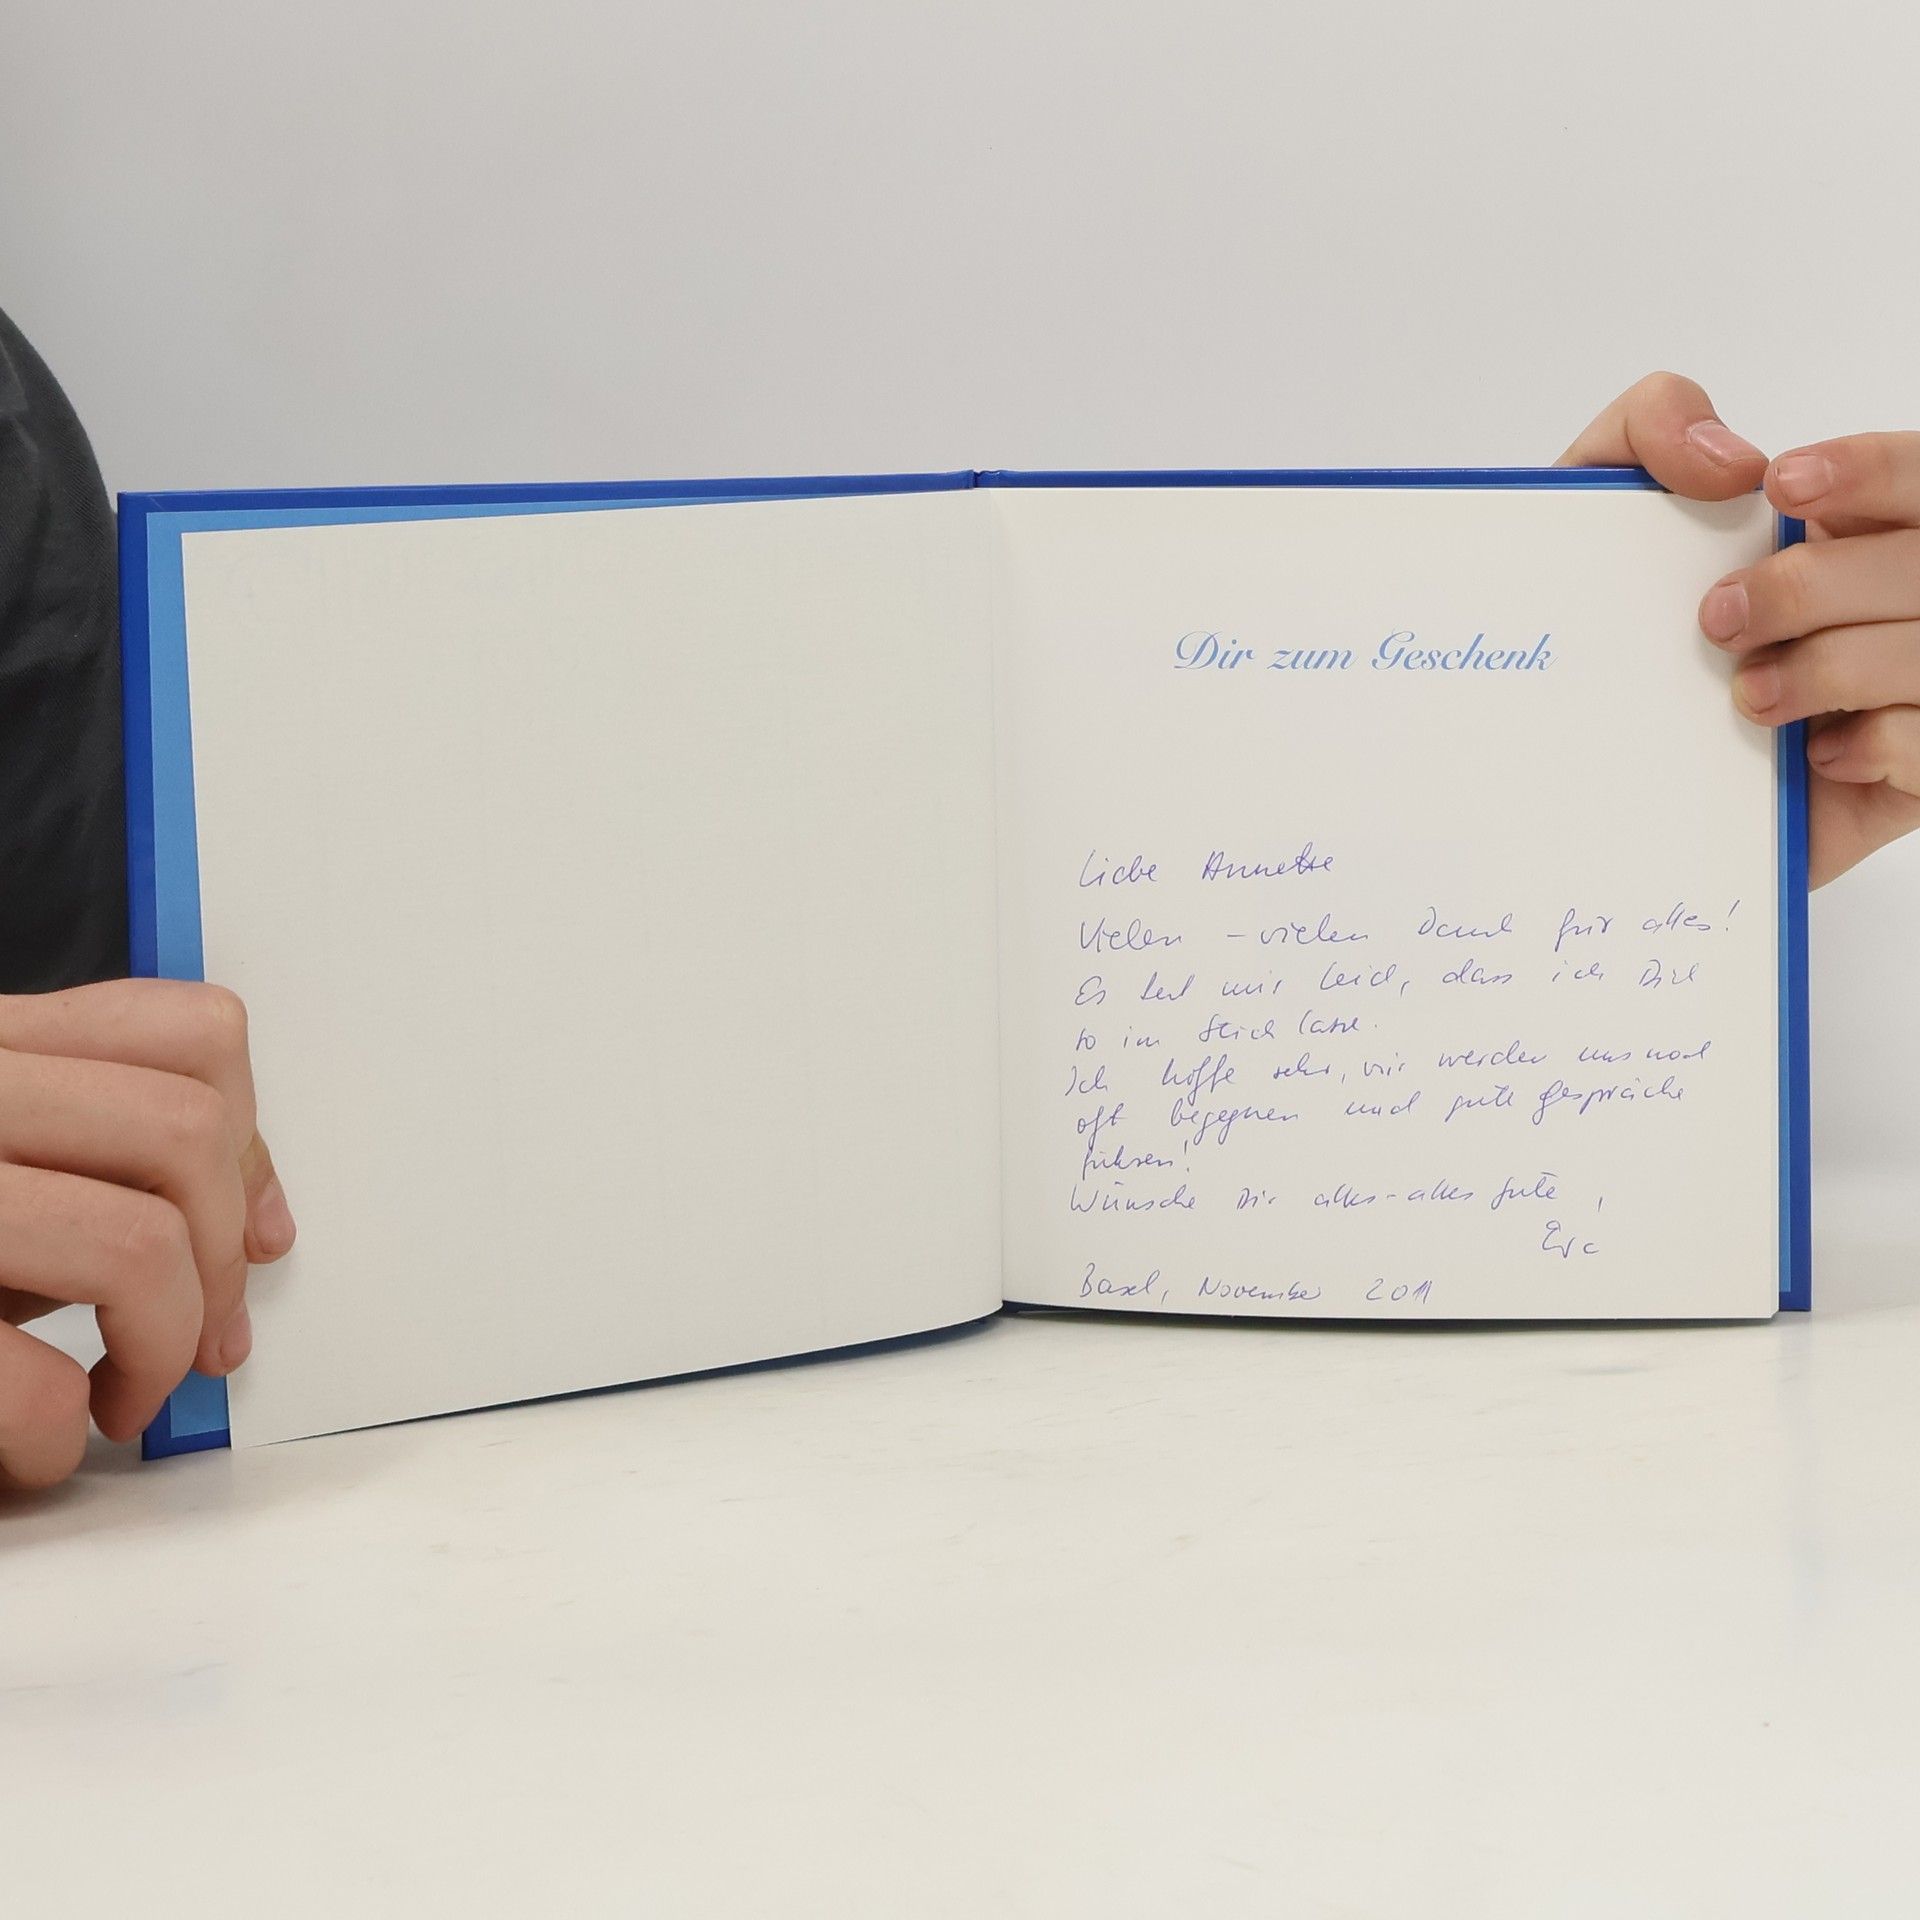 Dir zum Geschenk
Liebe Annette
Vielen - vielen Dank für alles!
Es tut mir leid, dass ich Dich
so im Stich lasse.
Ich hoffe sehr, wir werden uns noch
oft begegnen und gute Gespräche
führen!
Wünsche Dir alles - alles Gute,
Eva
Basel, November 2011